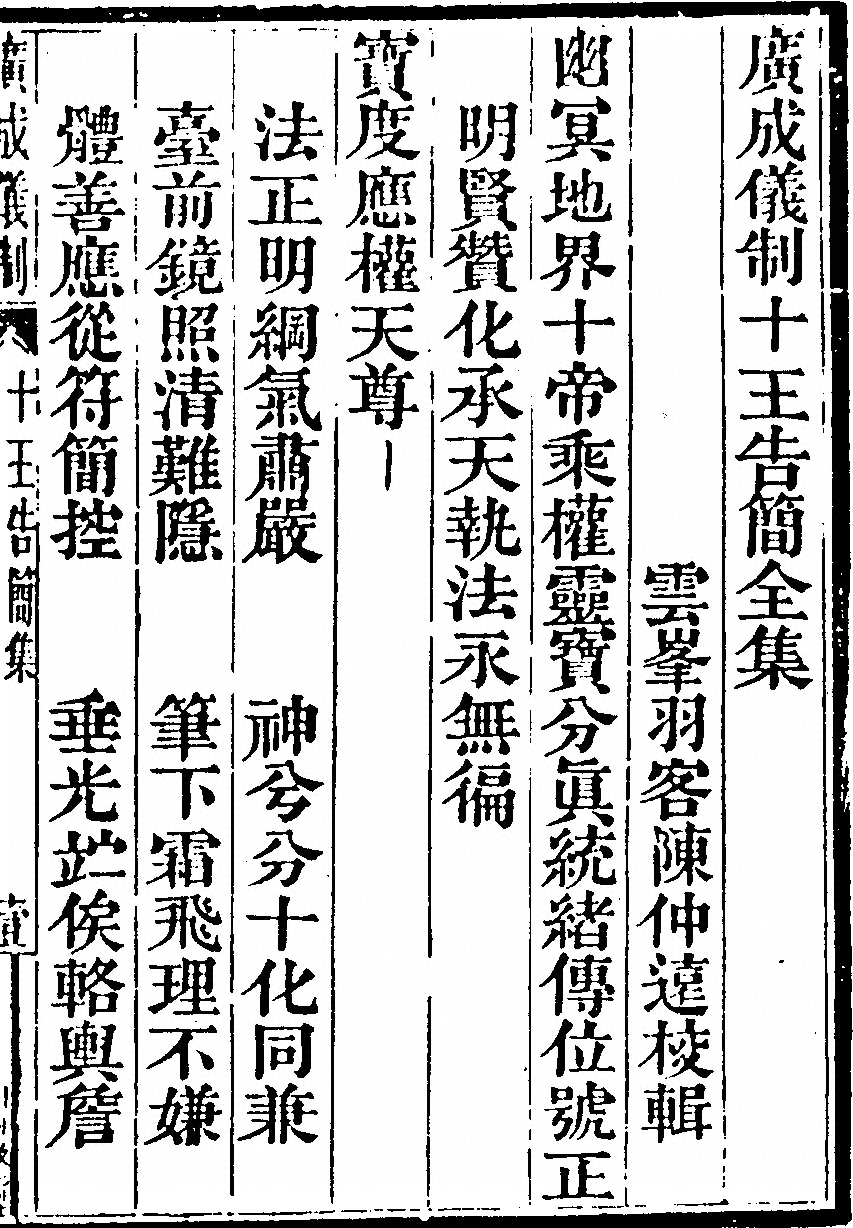 廣成儀制十王告簡全集
雲峯羽客陳仲遠校輯
幽冥地界十帝乘權靈寶分眞統緒傳位號正
明賢贊化承天執法永無徧
寶度應權天尊｜
法正明綱氣肅嚴　神兮分十化同兼
臺前鏡照清難隱　筆下霜飛理不嫌
體善應從符簡控　垂光竚俟輅輿詹
廣成儀制　十王告簡集　壹